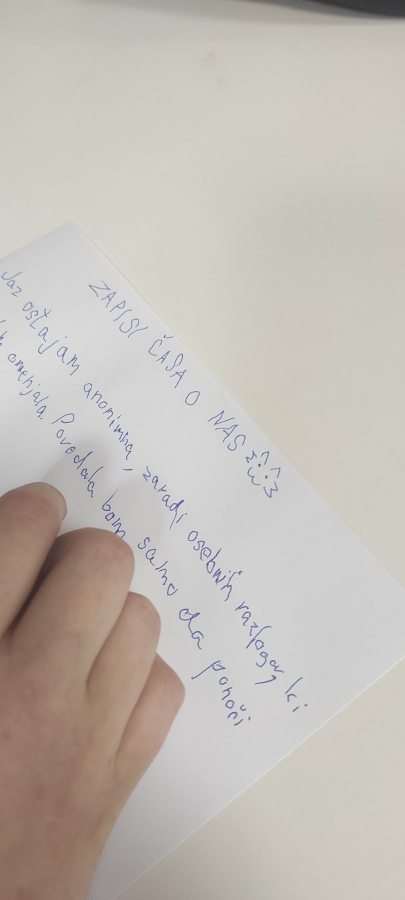 ZAPISI ČASA O NAS
Jaz ostajam anonimna, zaradi osebnih razlogov, ki
omenjala. Povedala bom samo da ponoči